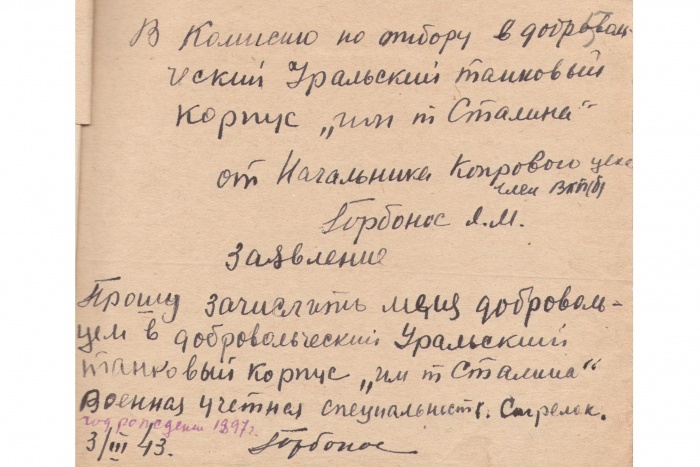 В Комисию по отбору в добровол-
ческий Уральский танковый
корпус „им т Сталина“
от Начальника Копрового цеха
член ВКП(б)
Горбонос Я.М.
Заявление
Прошу зачислить меня доброволь-
цем в добровольческий Уральский
танковый корпус „им т Сталина“
Военная учетная специальность. Стрелок.
год рождения 1897г.
3/III 43. Горбонос